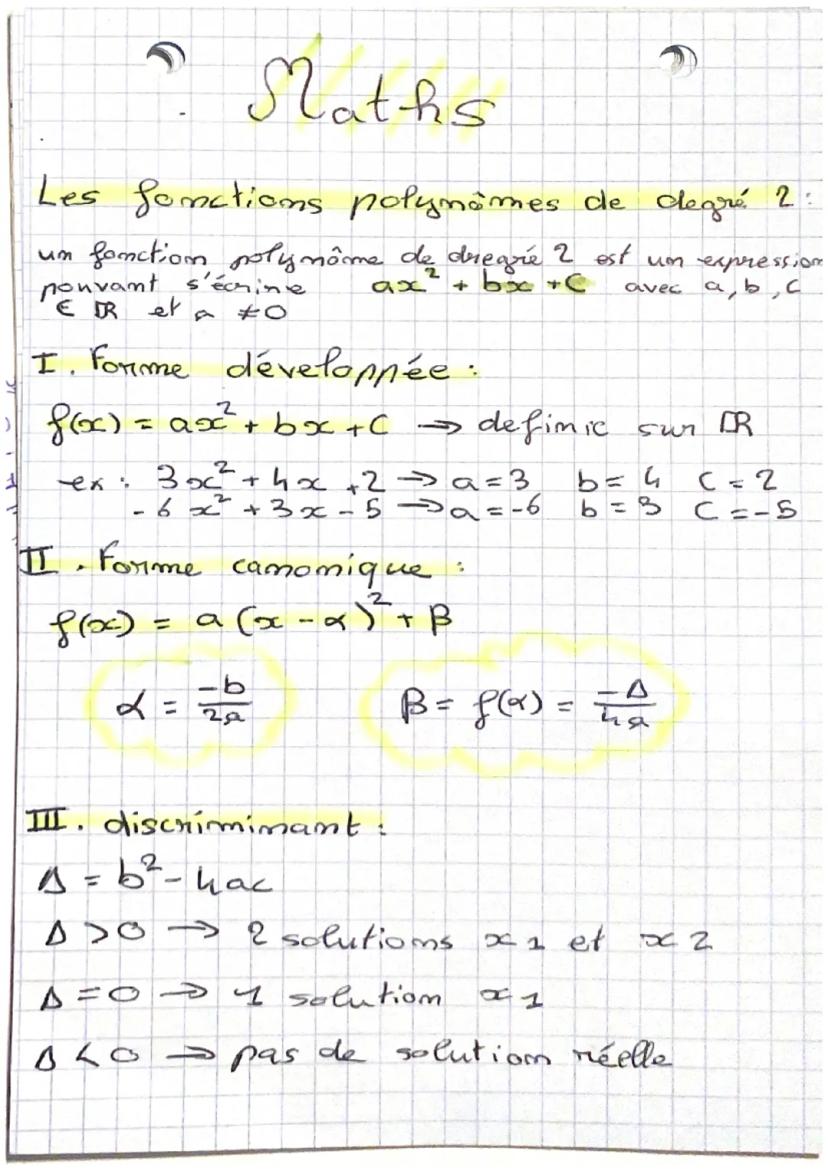 Maths
Les fonctions polynômes de degré 2 :
un fonction polynôme de dregrée 2 est un expression
pouvant s'écrire ax² + bx + C avec a, b, c
∈ ℝ et a ≠ 0
I. Forme développée :
f(x) = ax² + bx + C → definie sur ℝ
ex : 3x² + 4x + 2 → a = 3 b = 4 C = 2
- 6x² + 3x - 5 → a = -6 b = 3 C = -5
II. Forme canonique :
f(x) = a (x - α)² + β
α = -b/2a β = f(α) = -Δ/4a
III. discriminant :
Δ = b² - 4ac
Δ > 0 → 2 solutions x1 et x2
Δ = 0 → 1 solution x1
Δ < 0 → pas de solution réelle